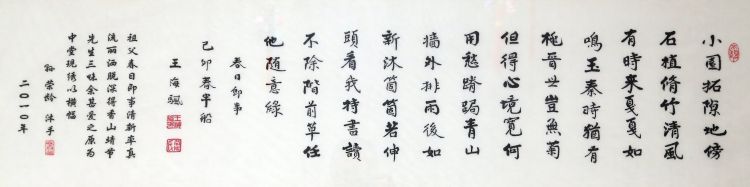 小園拓隙地傍
石植脩竹清風
有時來戛戛如
鳴玉秦時猶有
桃晉世豈無菊
但得心境寬何
用愁蹐跼青山
牆外排雨後如
新沐箇箇若伸
頭看我持書讀
不除階前草任
他隨意綠
春日即事
己卯春平船
王海颿
祖父春日即事清新率真
流丽洒脱深得香山靖节
先生三昧余甚爱之原为
中堂现绣以横幅
孙荣龄沐手
二〇一〇年